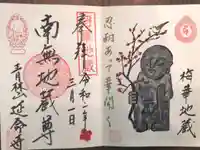 梅華地蔵
忍耐あって華開く
奉拝
令和二年
三月一日
南無地蔵尊
青林山延命寺